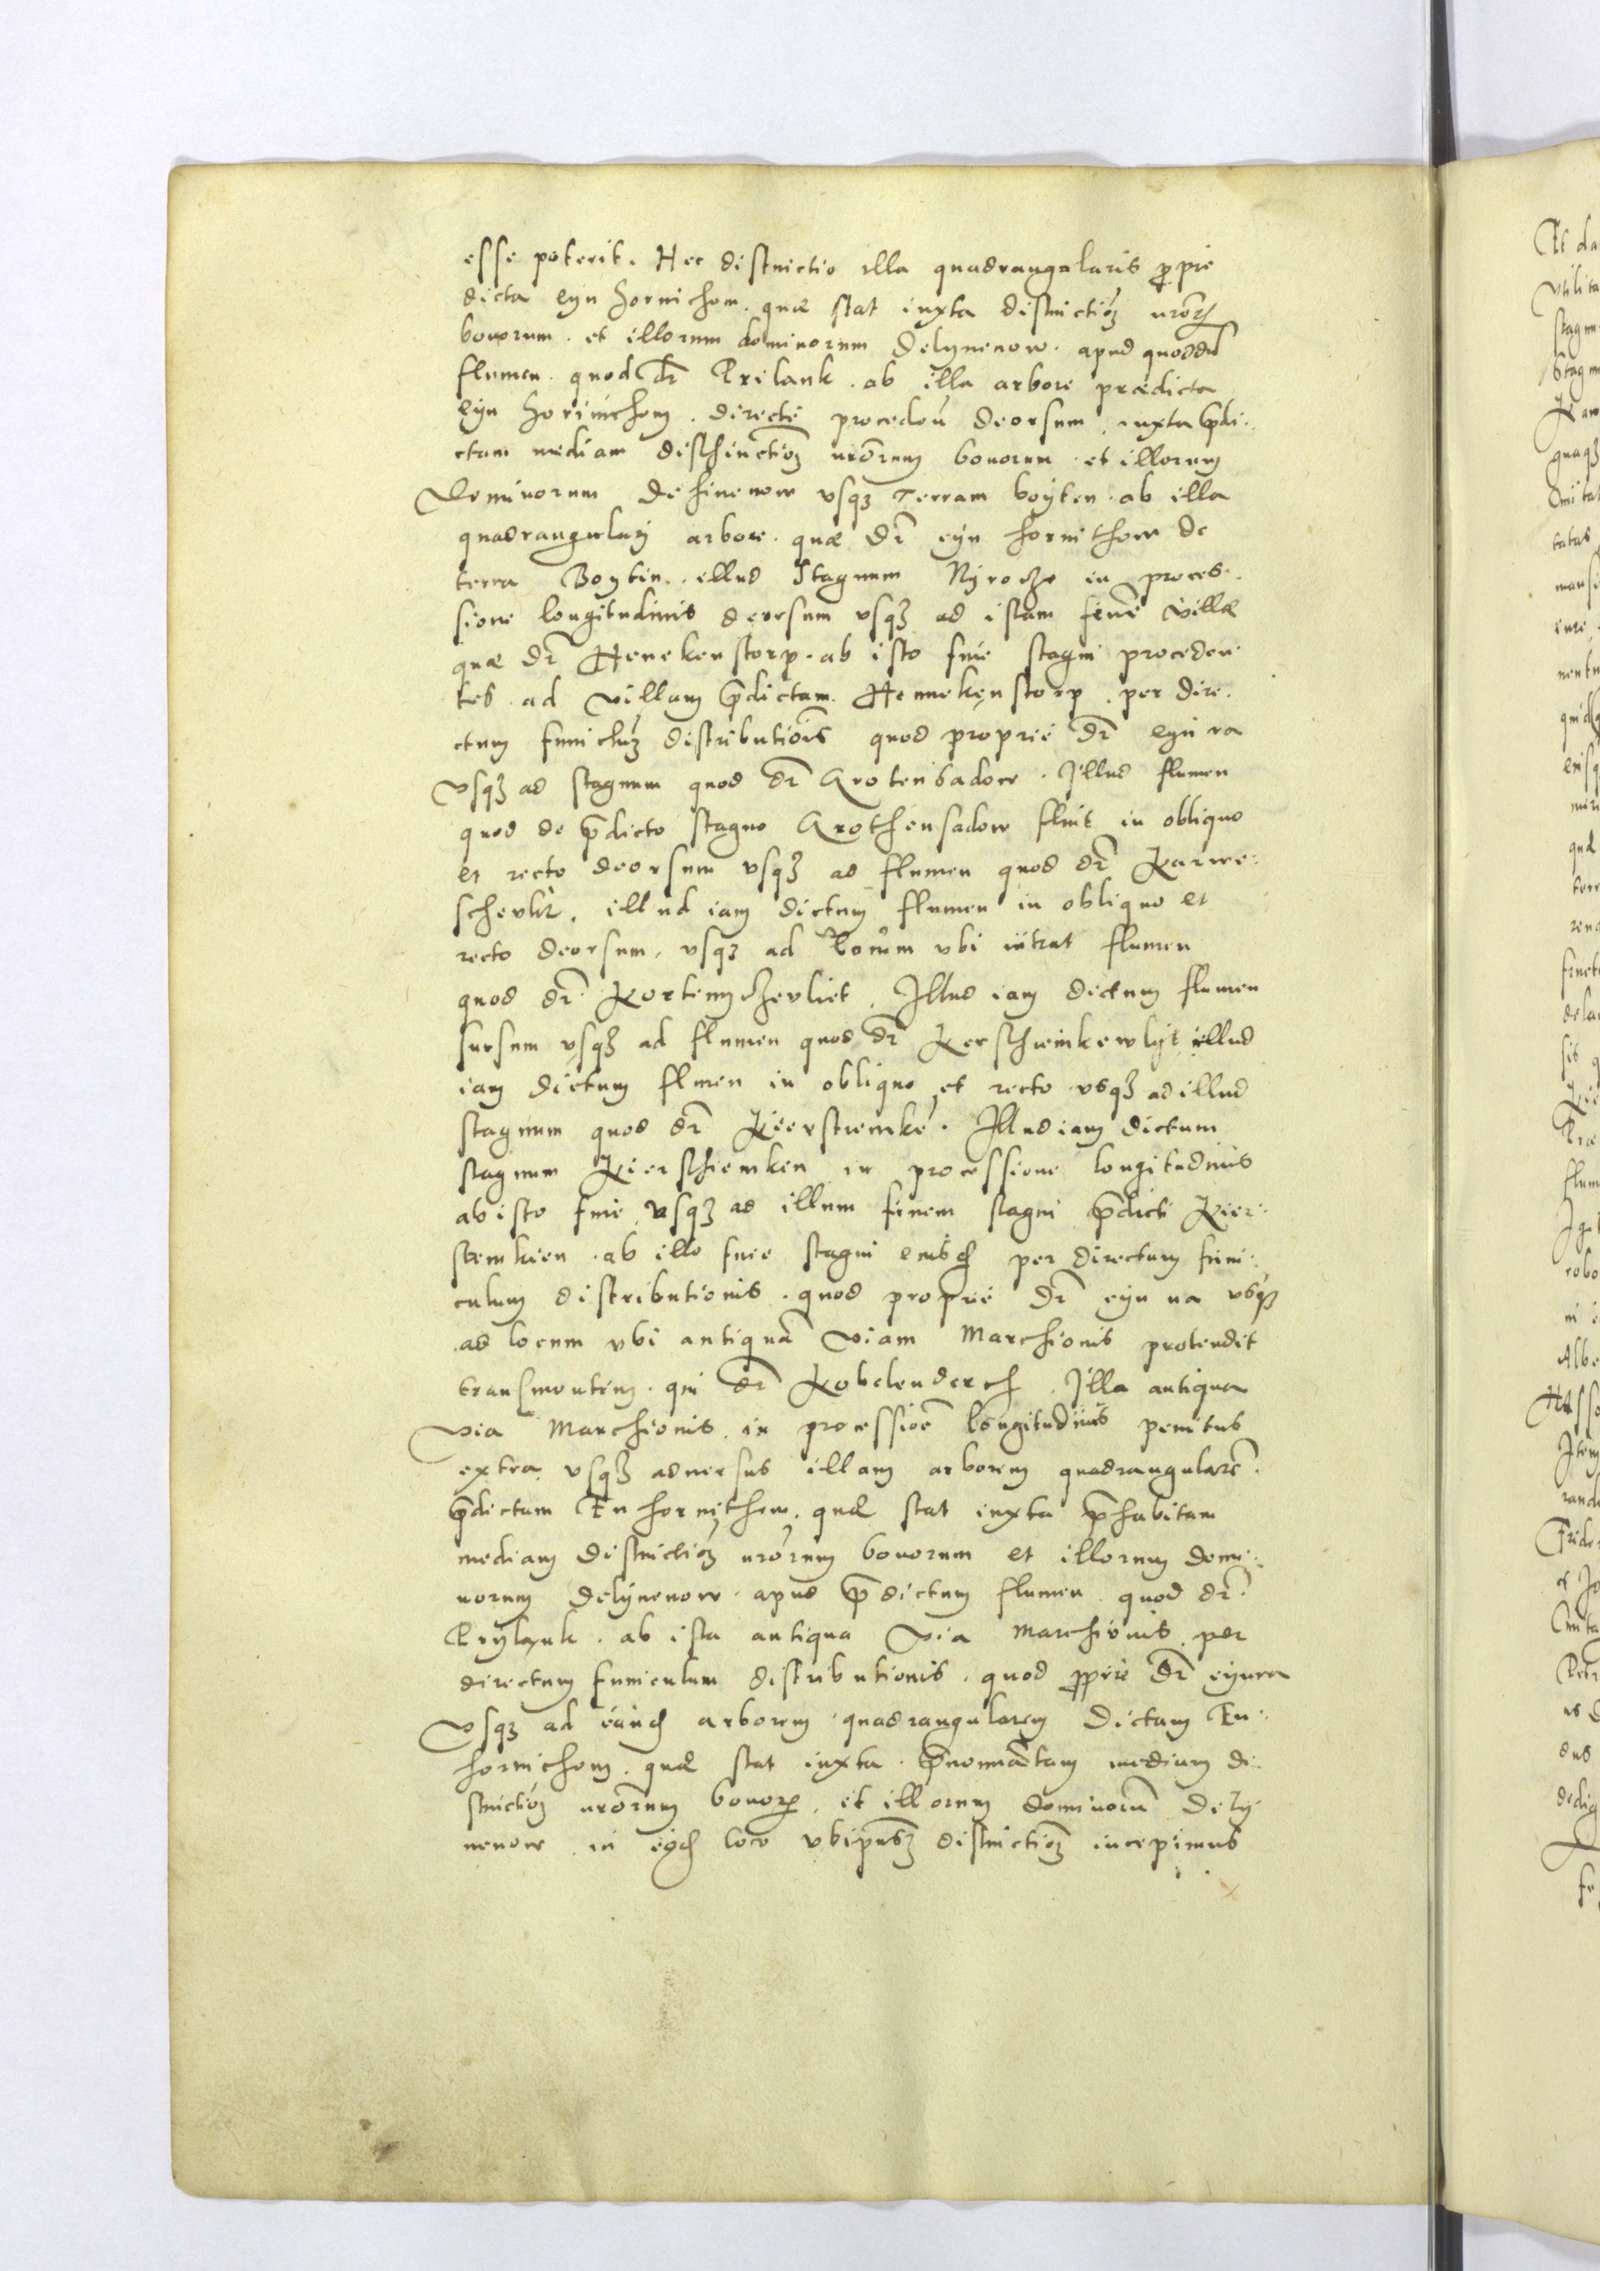 esse poterit. Hec distinctio illa quadrangularis ꝓprie
dicta eyn hornichom. quæ stat iuxta distinctiõʒ nr̃oꝝ
bonorum. et illorum dominorum Delynenow. apud quoddã
flumen. quod dr̃ Krilank. ab illa arbore prædicta
eyn hornichom. directe procedẽ deorsum. iuxta p̃di-
ctam mediam distinctiõʒ nr̃orum bonorum. et illorum
Dominorum Delinenow vsqʒ Terram boyten. ab illa
quadrangulari arbore. quæ dr̃ eyn hornithom de
terra Boytin. illud Stagnum Nyrodze in proces-
sione longitudinis deorsum vsqʒ ad istam finẽ villæ
quæ dr̃ Henekenstorp. ab isto fine stagni proceden-
tes. ad villam p̃dictam Hennekenstorp. per dire-
ctum funiclũʒ distributiõis quod proprie dr̃ eyn ra
vsqʒ ad stagnum quod dr̃ Grotensadow. Illud flumen
quod de p̃dicto stagno Grothensadow fluit in obliquo
et recto deorsum vsqʒ ad flumen quod dr̃ Karwe-
schevlit. illud iam dictum flumen in obliquo et
recto deorsum. vsqʒ ad locum vbi intrat flumen
quod dr̃ Kortemzhevliet. Illud iam dictum flumen
sursum vsqʒ ad flumen quod dr̃ Kerschemkewlyt illud
iam dictum flmen in obliquo et recto vsqʒ ad illud
stagnum quod dr̃ Kierstiemkẽ. Illud iam dictum
stagnum Kierschiemken in processione longitudinis
ab isto fine vsqʒ ad illum finem stagni p̃dicti Kier-
stemkien. ab illo fine stagni eiusd per directum funi-
culum distributionis. quod proprie dr̃ eyn na vsqʒ
ad locum vbi antiquã viam Marchionis protendit
transmontem. qui dr̃ Kobelenderch. Illa antiqua
via Marchionis. in processiõe longitudinis penitus
extra vsqʒ aduersus illam arborem quadrangularẽ.
p̃dictam En hornithom. quæ stat iuxta p̃habitam
mediam distinctiõʒ nr̃orum bonorum et illorum domi-
norum Delynenow. apud p̃dictum flumen. quod dr̃
Krylank. ab ista antiqua via Marchionis per
directum funiculum distributionis. quod ꝓprie dr̃ eynra
vsqʒ ad eãnd arborem quadrangularem dictam En-
hornichom. quæ stat iuxta. p̃nominãtam medium di-
stinctiõʒ nr̃orum bonoꝝ. et illorum dominorũ Dely-
nenow in eod loco vbi distinctiõʒ incepimus